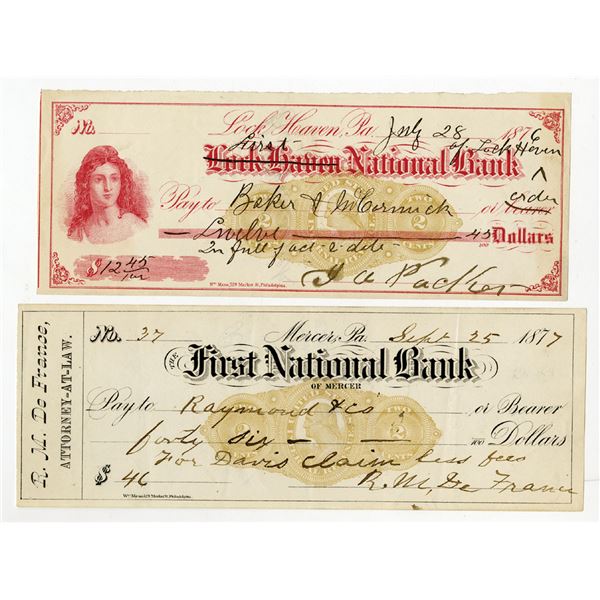 No. Lock Haven, Pa. July 28 1876
First of Lock Haven
Lock Haven National Bank ^
Pay to Baker & McCormick or bearer order
Twelve 45/100 Dollars
In full of act. to date
$12 45/100
Wm Mann, 529 Market St, Philadelphia.
J A Packer
UNITED
TWO CENTS
R. M. De France,
ATTORNEY-AT-LAW.
No. 37 Mercer, Pa. Sept 25 1877
THE First National Bank
OF MERCER
Pay to Raymond & Co or Bearer
forty six — — 100 Dollars
For Davis Claim less fees
$ 46 R. M. De France
Wm Mann, 529 Market St, Philadelphia.
TWO
2 2